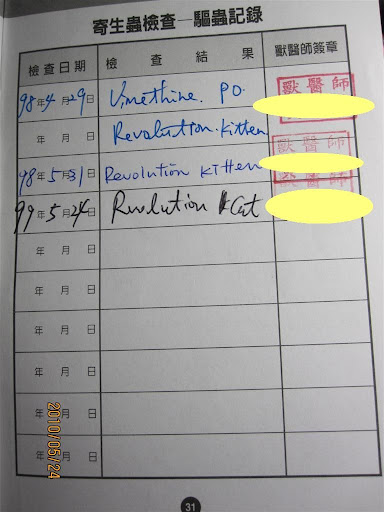 寄生蟲檢查—驅蟲記錄
檢查日期 檢查結果 獸醫師簽章
98年4月29日 Vimethine. PO. 獸醫師
年 月 日 Revolution. Kitten
獸醫師
98年5月31日 Revolution Kitten
獸醫師
99年5月24日 Revolution Cat
年 月 日
年 月 日
年 月 日
年 月 日
年 月 日
年 月 日
2010/05/24
31